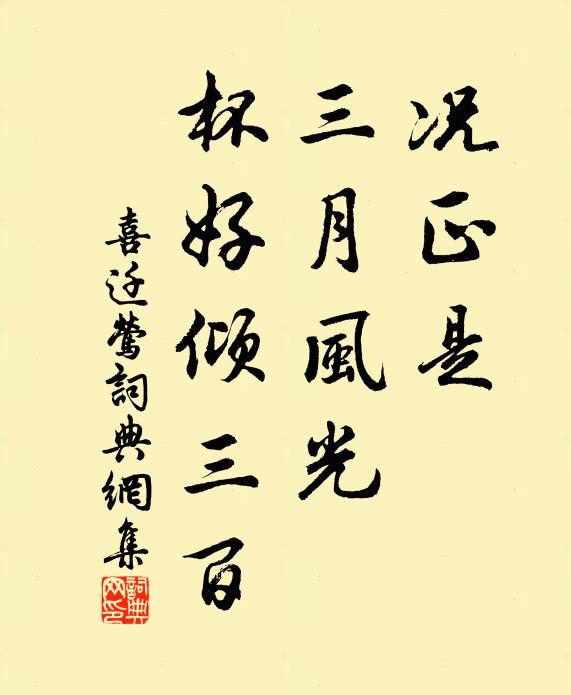 况正是
三月風光
杯好傾三百
喜迁鶯詞典網集
詞典网印